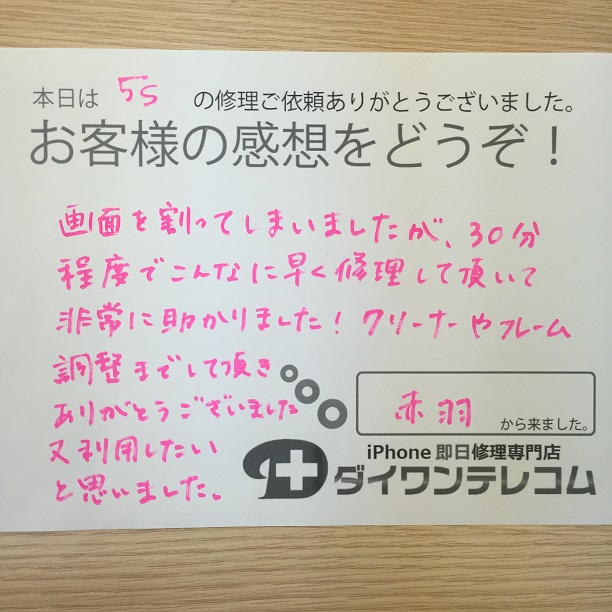 本日は 5S の修理ご依頼ありがとうございました。
お客様の感想をどうぞ！
画面を割ってしまいましたが、30分
程度でこんなに早く修理して頂いて
非常に助かりました！クリーナーやフレーム
調整までして頂き
ありがとうございました
又利用したい
と思いました。
赤羽 から来ました。
iPhone 即日修理専門店
ダイワンテレコム